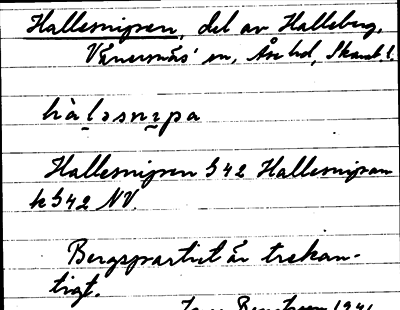 Hallesnipen, del av Halleberg,
Vänersnäs' sn, Åse hd, Skarab. l.
hàləsnıpa
Hallesnipen § 42 Hallesnipan
k § 42 NV.
Bergspartiet är trekan-
tigt.
1941